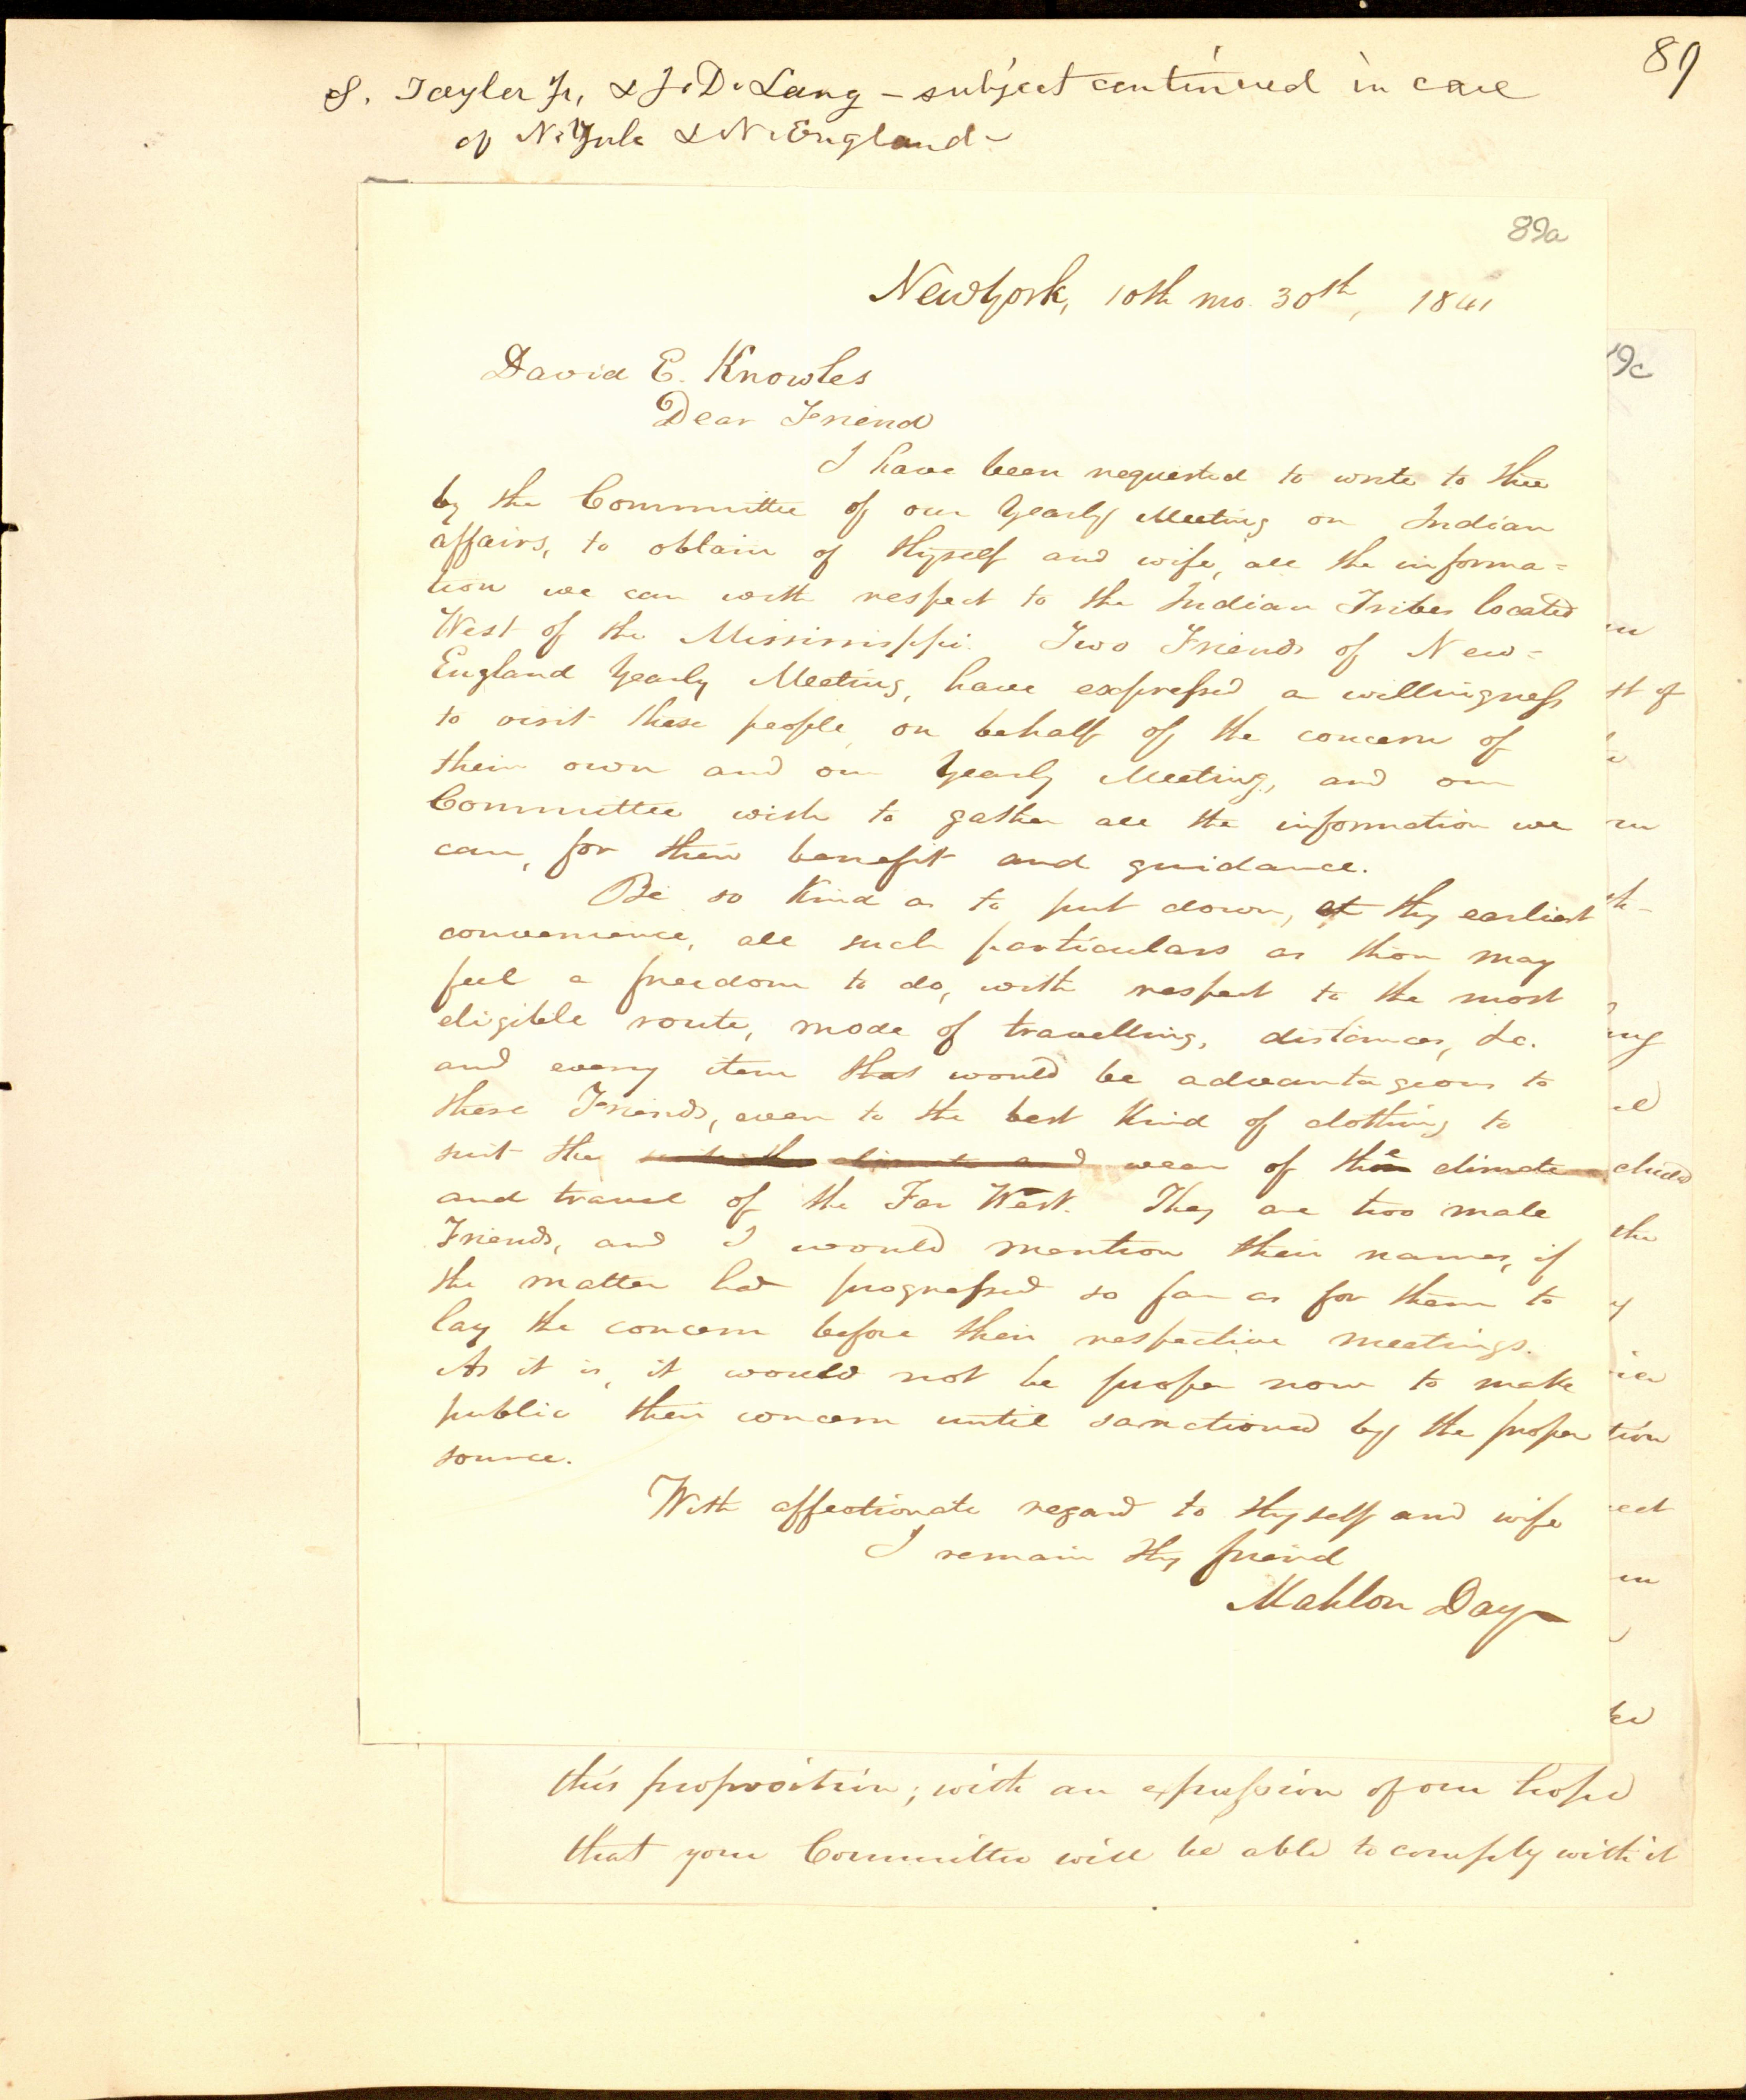 89
S. Tayler Jr, & J. D. Lang – subject continued in care
of N. York & N. England –
89a
NewYork, 10th mo. 30th, 1841
David E. Knowles
Dear Friend
I have been requested to write to thee
by the Committee of our Yearly Meeting on Indian
affairs, to obtain of thyself and wife, all the informa=
tion we can with respect to the Indian Tribes located
West of the Mississippi. Two Friends of New=
England Yearly Meeting, have expressed a willingness
to visit these people, on behalf of the concern of
their own and our Yearly Meeting, and our
Committee wish to gather all the information we
can, for their benefit and guidance.
Be so kind as to put down, at thy earliest
convenience, all such particulars as thou may
feel a freedom to do, with respect to the most
eligible route, mode of travelling, distances, &c.
and every item that would be advantageous to
these Friends, even to the best kind of clothing to
suit the climate and wear of the climate
and travel of the Far West. They are two male
Friends, and I would mention their names, if
the matter had progressed so far as for them to
lay the concern before their respective meetings.
As it is, it would not be proper now to make
public their concern until sanctioned by the proper
source.
With affectionate regard to thyself and wife
I remain thy friend
Mahlon Day
9c
st of
ing
cluded
the
tion
ect
this proposition; with an expression of our hope
that your Committee will be able to comply with it